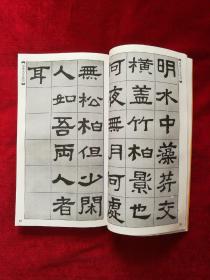 明水中藻荇交
橫盖竹柏影也
何夜無月何處
無松柏但少閑
人如吾兩人者
耳